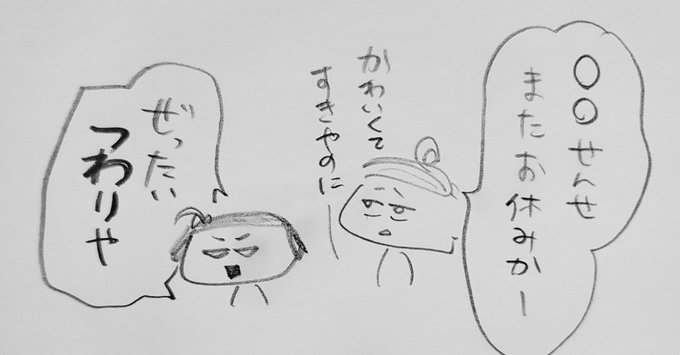 〇〇せんせ
またお休みかー
かわいくて
すきやのにー
ぜったい
つわりや